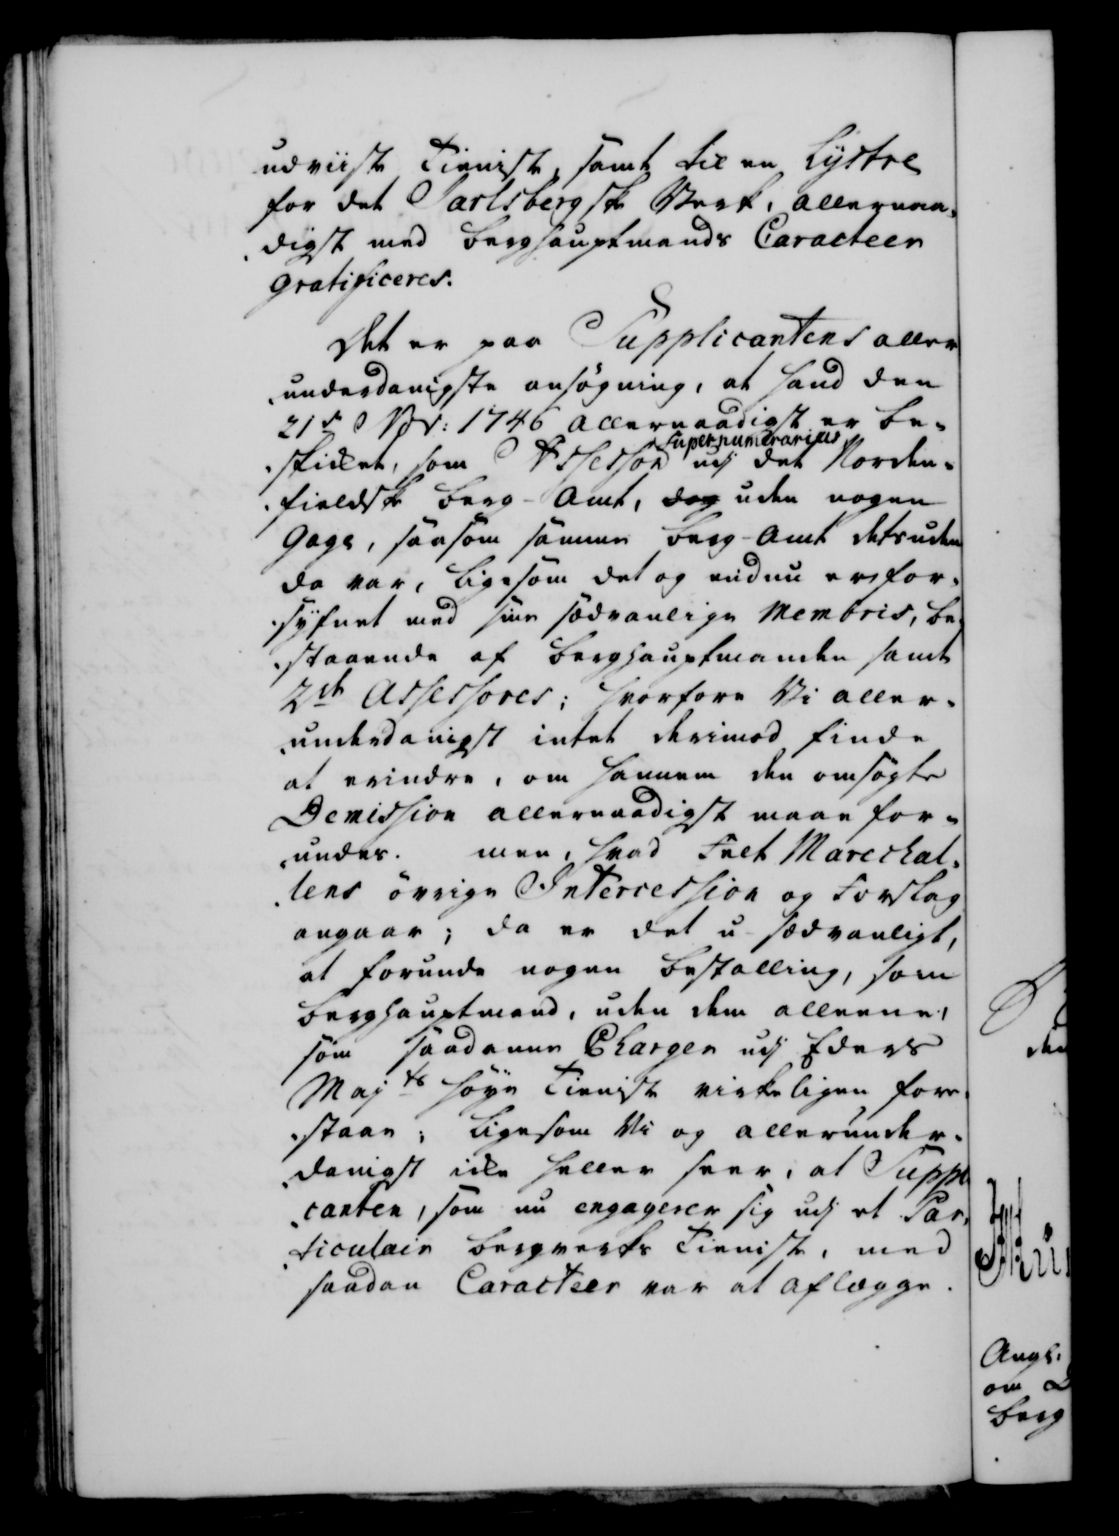 udviiste Tieniste, samt til en Lÿstre
for det Jarlsbergske Verk, allernaa-
digst med Berghauptmands Caracteer
gratificeres.
Det er paa Supplicantens aller
underdanigste ansøgning, at hand den
21de 1746 allernaadigst er be-
skikket, som Assessor supernumerarius udj det Norden-
fieldske Berg-Amt, dog uden nogen
Gage, saasom samme Berg-Amt detsuden
da var, ligesom det og endnu er, for-
sÿfnet med sine sædvanlige Membris, be-
staaende af Berghauptmanden samt
2de Assessores; hvorfore Vi aller-
underdanigst intet derimod finde
at erindre, om hannem den omsøgte
Demission allernaadigst maae for-
undes. men, hvad Felt Marechal-
lens övrige Intercession og Forslag
angaar; da er det u-sædvanligt,
at forunde nogen Bestalling, som
Berghauptmand, uden dem alleene,
som saadanne Charger udj Eders
Mayts høye Tieniste virkeligen fore-
staae; ligesom Vi og allerunder-
danigst icke heller seer, at Suppli
canten, som nu engagerer sig udj et Par-
ticulair Bergverks Tieniste, med
saadan Caracteer var at aflægge.
den
Ang:
om
Berg